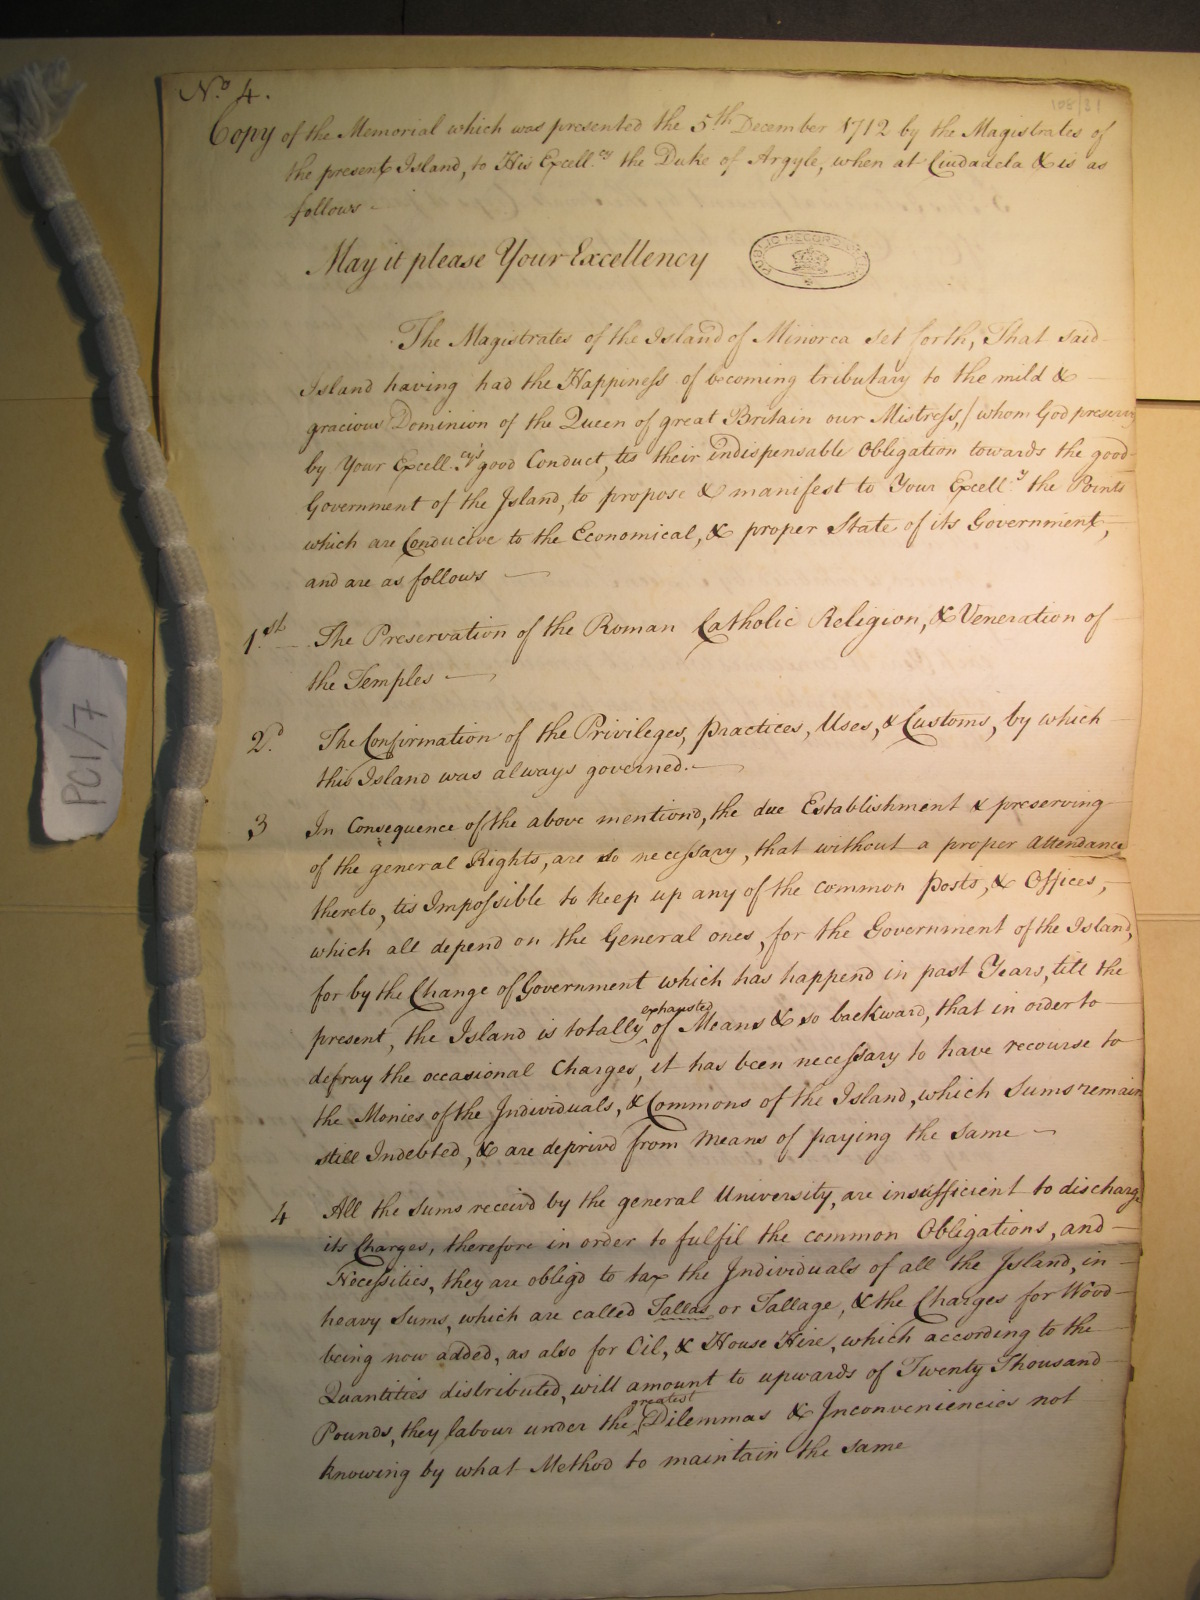 No. 4.
108/21
Copy of the Memorial which was presented the 5th December 1712 by the Magistrates of
the present Island, to His Excell.cy the Duke of Argyle, when at Ciudadela & is as
follows -
PUBLIC RECORD OFFICE
May it please Your Excellency
The Magistrates of the Island of Minorca set forth, That said
Island having had the Happiness of becoming tributary to the mild &
gracious Dominion of the Queen of great Britain our Mistress, / whom God preserve
by Your Excell.cy's good Conduct, tis their indispensable Obligation towards the good
Government of the Island, to propose & manifest to Your Excell.y the Points
which are Conducive to the Economical, & proper State of its Government,
and are as follows —
1st. — The Preservation of the Roman Catholic Religion, & Veneration of
the Temples —
2.d The Confirmation of the Privileges, Practices, Uses, & Customs, by which
this Island was always governed. —
3 In Consequence of the above mentiond, the due Establishment & preserving
of the general Rights, are so necessary, that without a proper attendance
thereto, tis Impossible to keep up any of the common Posts, & Offices,
which all depend on the General ones, for the Government of the Island,
for by the Change of Government which has happend in past Years, till the
present, the Island is totally exhausted of Means & so backward, that in order to
defray the occasional Charges, it has been necessary to have recourse to
the Monies of the Individuals, & Commons of the Island, which Sums remain
still Indebted, & are deprivd from Means of paying the same —
4 All the Sums receivd by the general University, are insufficient to discharge
its Charges, therefore in order to fulfil the common Obligations, and
Necessities, they are obligd to tax the Individuals of all the Island, in
heavy Sums, which are called Tallas or Tallage, & the Charges for Wood
being now added, as also for Oil, & House Hire, which according to the
Quantities distributed, will amount to upwards of Twenty Thousand
Pounds, they labour under the greatest Dilemmas & Inconveniencies not
knowing by what Method to maintain the same
PC1/7